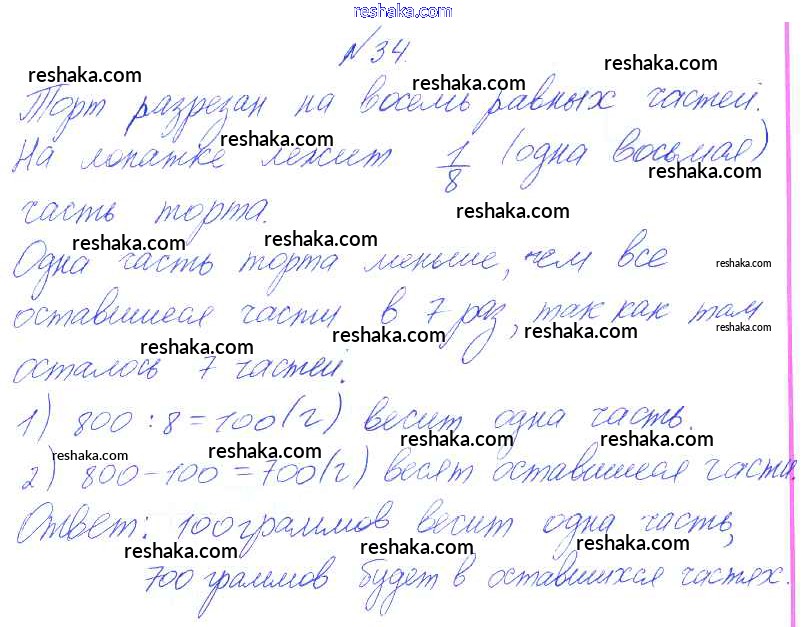 reshaka.com
№34.
reshaka.com reshaka.com reshaka.com
Торт разрезан на восемь равных частей.
reshaka.com reshaka.com
На лопатке лежит 1/8 (одна восьмая)
reshaka.com
часть торта.
reshaka.com reshaka.com
Одна часть торта меньше, чем все
reshaka.com
оставшиеся части в 7 раз, так как там
reshaka.com reshaka.com reshaka.com reshaka.com
осталось 7 частей.
1) 800 : 8 = 100 (г) весит одна часть.
reshaka.com reshaka.com reshaka.com reshaka.com
2) 800 - 100 = 700 (г) весят оставшиеся части.
Ответ: 100 граммов весит одна часть,
reshaka.com reshaka.com reshaka.com
700 граммов будет в оставшихся частях.